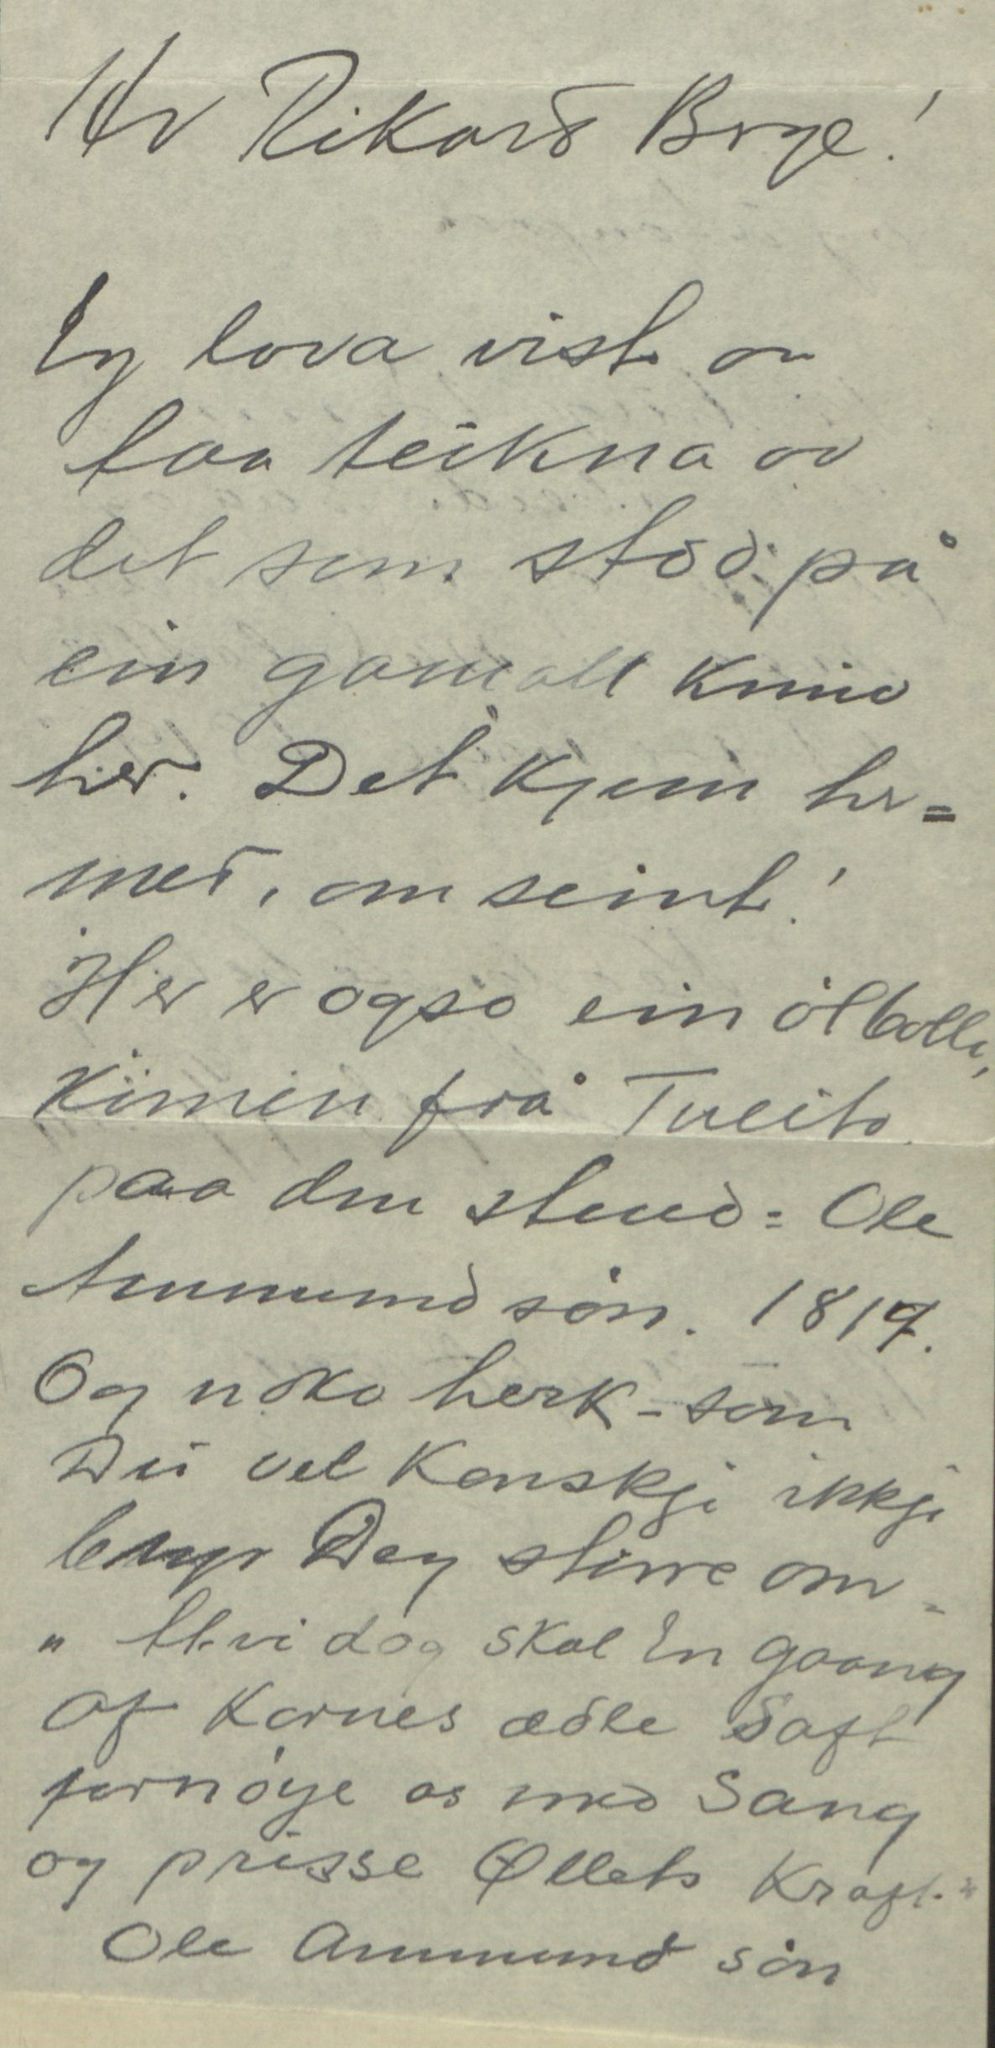 Hr Rikard Berge!
Eg lova vist aa
faa teikna av
det som stod på
ein gamall
her. Det kjem her=
med, om seint!
Her er også ein ölbolle,
kömen frå Tveito
paa den stend: Ole
Aanumnd sön. 1817.
Og noko herk - som
Du vel kanskje ikkje
bryr Deg större om -
" At vi dog skal En gaang
af Kornes ædle Saft
fornöye os med Sang
og prisse Øllets Kraft."
Ole Aanumnd sön